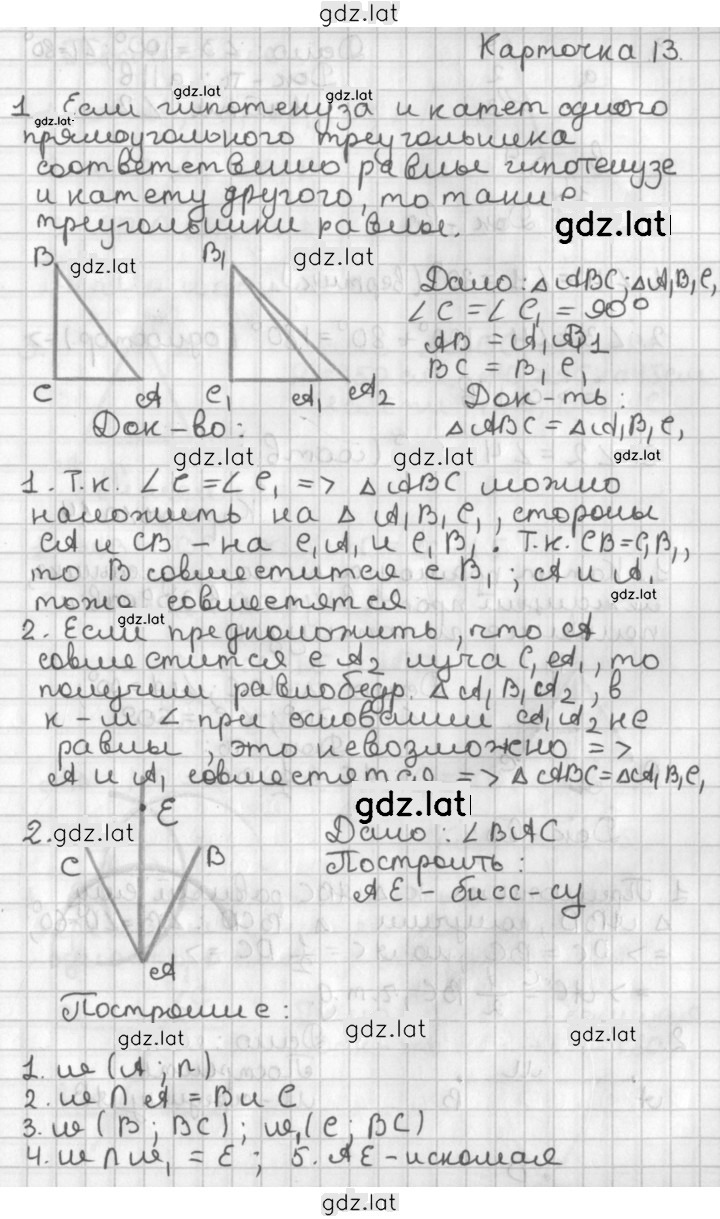 gdz.lat
Карточка 13.
gdz.lat gdz.lat
1 Если гипотенуза и катет одного
gdz.lat
прямоугольного треугольника
соответственно равны гипотенузе
и катету другого, то такие
треугольники равны.
gdz.lat
gdz.lat gdz.lat
B B₁
Дано: △ABC; △A₁B₁C₁
∠C = ∠C₁ = 90°
AB = A₁B₁
BC = B₁C₁
C A C₁ A₁ A₂
Док-ть:
Док-во:
△ABC = △A₁B₁C₁
gdz.lat gdz.lat gdz.lat
1. Т.к. ∠C = ∠C₁ => △ABC можно
наложить на △A₁B₁C₁, стороны
CA и CB – на C₁A₁ и C₁B₁. Т.к. CB=C₁B₁,
то B совместится с B₁; A и A₁
gdz.lat
тоже совместятся
gdz.lat
2. Если предположить, что A
совместится с A₂ луча C₁A₁, то
получим равнобедр. △A₁B₁A₂, в
к-м ∠ при основании A₁A₂ не
равны, это невозможно =>
A и A₁ совместятся => △ABC=△A₁B₁C₁
gdz.lat
E
2. gdz.lat
Дано: ∠BAC
C B
Построить:
AE – бисс-су
A
Построение:
gdz.lat gdz.lat gdz.lat
1. w (A; r)
2. w ∩ A = B и C
3. w (B; BC); w₁(C; BC)
4. w ∩ w₁ = E; 5. AE – искомая
gdz.lat